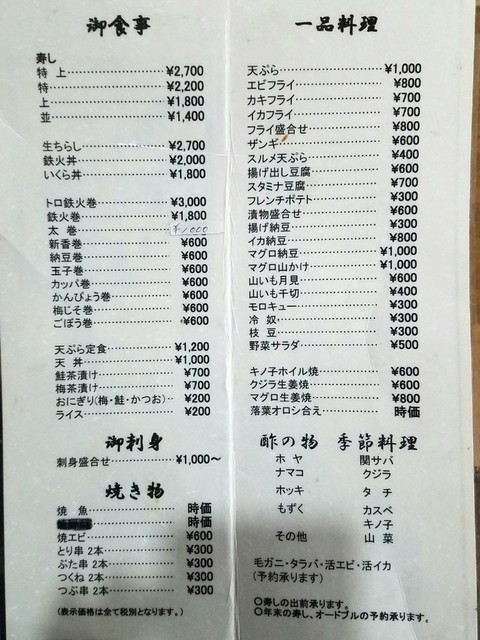 御食事
寿し
特 上 ¥2,700
特 ¥2,200
上 ¥1,800
並 ¥1,400
生ちらし ¥2,700
鉄火丼 ¥2,000
いくら丼 ¥1,800
トロ鉄火巻 ¥3,000
鉄火巻 ¥1,800
太 巻 ¥1,000
新香巻 ¥600
納豆巻 ¥600
玉子巻 ¥600
カッパ巻 ¥600
かんぴょう巻 ¥600
梅じそ巻 ¥600
ごぼう巻 ¥600
天ぷら定食 ¥1,200
天 丼 ¥1,000
鮭茶漬け ¥700
梅茶漬け ¥700
おにぎり(梅・鮭・かつお) ¥200
ライス ¥200
御刺身
刺身盛合せ ¥1,000〜
焼き物
焼 魚 時価
時価
焼エビ ¥600
とり串 2本 ¥300
ぶた串 2本 ¥300
つくね 2本 ¥300
つぶ串 2本 ¥300
(表示価格は全て税別となります。)
一品料理
天ぷら ¥1,000
エビフライ ¥800
カキフライ ¥700
イカフライ ¥700
フライ盛合せ ¥800
ザンギ ¥600
スルメ天ぷら ¥400
揚げ出し豆腐 ¥600
スタミナ豆腐 ¥700
フレンチポテト ¥300
漬物盛合せ ¥600
揚げ納豆 ¥300
イカ納豆 ¥800
マグロ納豆 ¥1,000
マグロ山かけ ¥1,000
山いも月見 ¥600
山いも千切 ¥400
モロキュー ¥300
冷 奴 ¥300
枝 豆 ¥300
野菜サラダ ¥500
キノ子ホイル焼 ¥600
クジラ生姜焼 ¥600
マグロ生姜焼 ¥800
落葉オロシ合え 時価
酢の物 季節料理
ホ ヤ 関サバ
ナマコ クジラ
ホッキ タ チ
もずく カスベ
キノ子
その他 山 菜
毛ガニ・タラバ・活エビ・活イカ
(予約承ります)
○寿しの出前承ります。
○年末の寿し、オードブルの予約承ります。